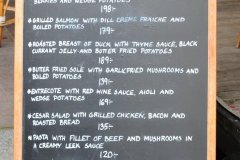 BERRIES AND WEDGE POTATOES
198:-
*GRILLED SALMON WITH DILL CREME FRAICHE AND
BOILED POTATOES
179:-
*ROASTED BREAST OF DUCK WITH THYME SAUCE, BLACK
CURRANT JELLY AND BUTTER FRIED POTATOES
189:-
*BUTTER FRIED SOLE WITH GARLICFRIED MUSHROOMS AND
BOILED POTATOES
159:-
*ENTRECOTE WITH RED WINE SAUCE, AIOLI AND
WEDGE POTATOES
169:-
*CESAR SALAD WITH GRILLED CHICKEN, BACON AND
ROASTED BREAD
135:-
*PASTA WITH FILLET OF BEEF AND MUSHROOMS IN
A CREAMY LEEK SAUCE
120:-